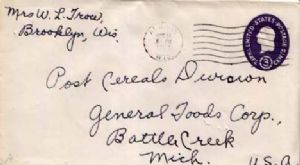 Mrs W. L. Trow,
Brooklyn, Wis.
UNITED STATES POSTAGE
3
Post Cereals Division
General Foods Corp.,
Battle Creek
Mich.
U.S.A